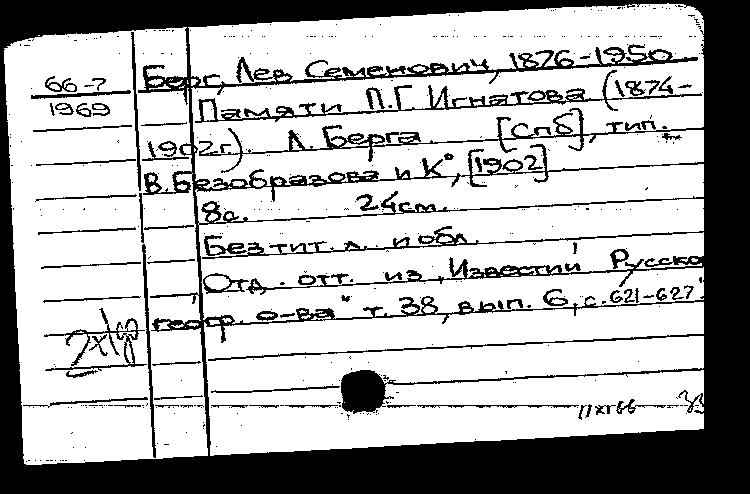 66-7
1969
Берг, Лев Семенович, 1876-1950
Памяти П.Г. Игнатова (1874-
1902г). Л. Берга. [Спб], тип.
В. Безобразова и К°, [1902]
8с. 24см.
Без тит. л. и обл.
Отд. отт. из „Известий Русско
геогр. о-ва" т. 38, вып. 6, с. 621-627.
11 XI 66